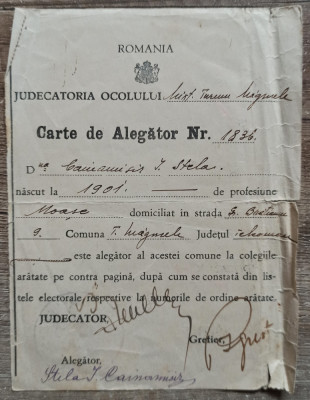 ROMANIA
JUDECATORIA OCOLULUI Mixt. Turnu Măgurele
Carte de Alegător Nr. 1836.
D na I. Stela.
născut la 1901. — de profesiune
Moașe domiciliat in strada
9. Comuna T. Măgurele Județul Teleorman
este alegător al acestei comune la colegiile
arătate pe contra pagină, după cum se constată din lis-
tele electorale respective la numerile de ordine arătate.
JUDECĂTOR,
Grefier,
Alegător,
Stela I.